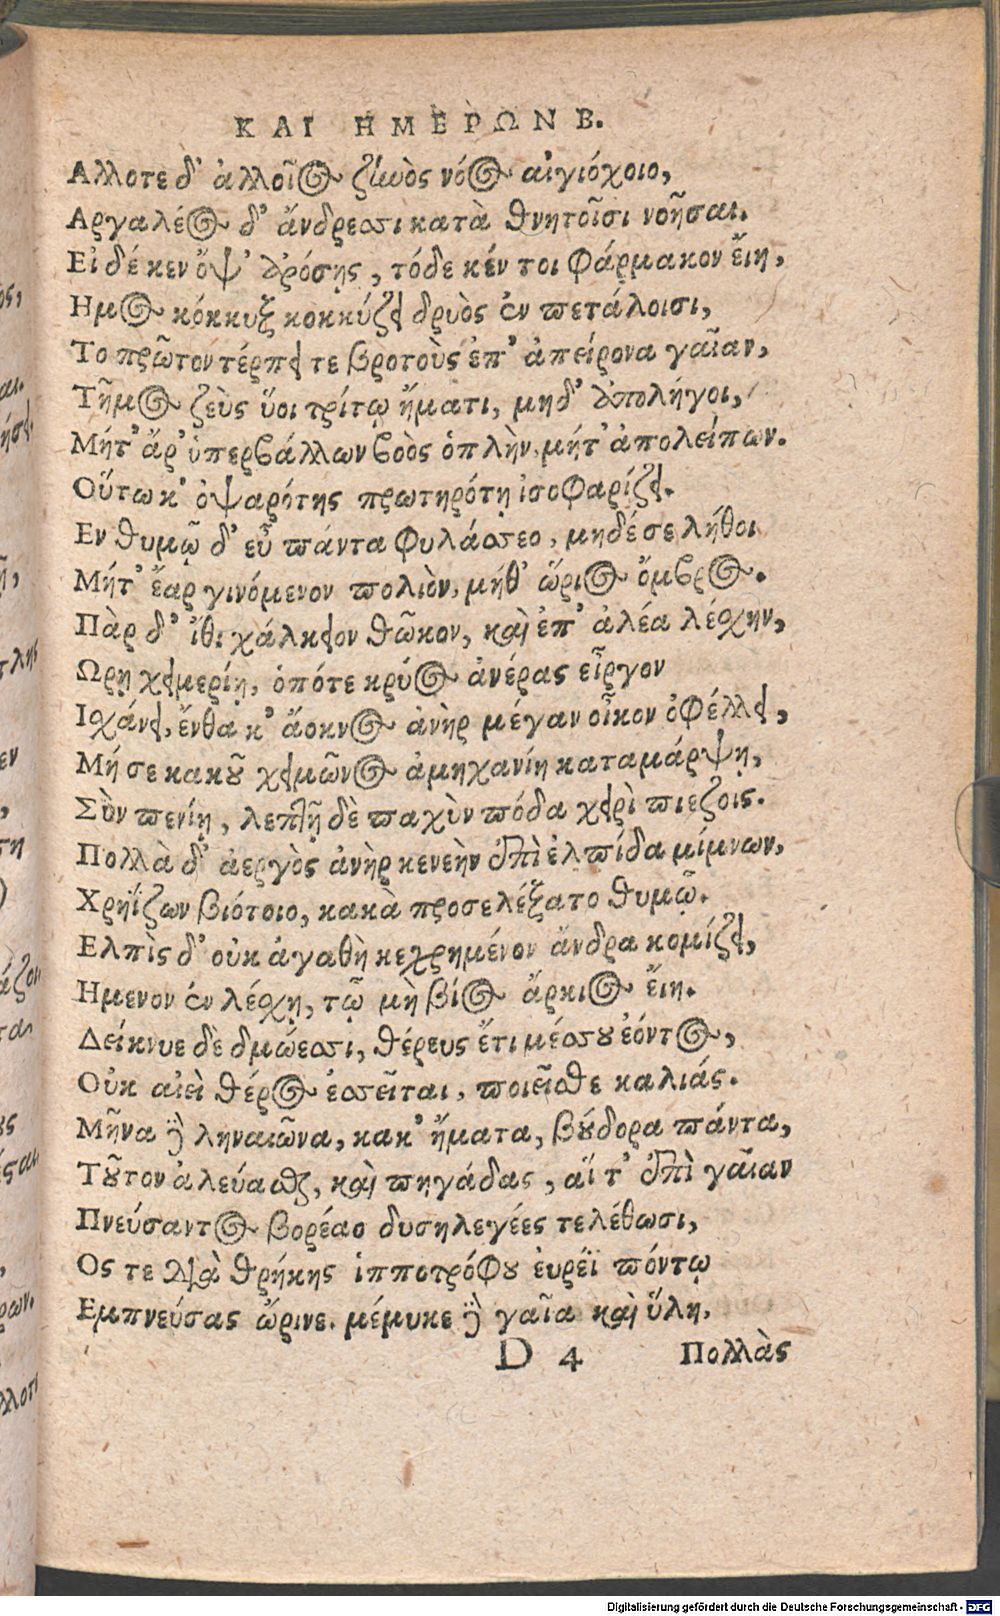 ΚΑΙ ΗΜΕΡΩΝ Β.
Αλλοτε δ' ἀλλοῖος ζίωὸς νόος αἰγιόχοιο,
Αργαλέος δ' ἄνδρεσσι κατὰ θνητοῖσι νοῆσαι.
Εἰ δέ κεν ὄψ' ἀρόσῃς, τόδε κέν τοι φάρμακον ἔιη,
Ημος κόκκυξ κοκκύζει δρυὸς ἐν πετάλοισι,
Το πρῶτον τέρπει τε βροτοὺς ἐπ' ἀπείρονα γαῖαν,
Τῆμος ζεὺς ὕοι τρίτῳ ἤματι, μηδ' ἀπολήγοι,
Μήτ' ἄρ' ὑπερβάλλων βοὸς ὁπλὴν, μήτ' ἀπολείπων.
Οὕτω κ' ὀψαρότης πρωτηρότῃ ἰσοφαρίζει.
Εν θυμῷ δ' εὖ πάντα φυλάσσεο, μηδέ σε λήθοι
Μήτ' ἔαρ γινόμενον πολιὸν, μήθ' ὥριος ὄμβρος.
Πὰρ δ' ἴθι χάλκειον θῶκον, καὶ ἐπ' ἀλέα λέσχην,
Ωρῃ χειμερίῃ, ὁπότε κρύος ἀνέρας εἶργον
Ισχάνει, ἔνθα κ' ἄοκνος ἀνὴρ μέγαν οἶκον ὀφέλλει,
Μή σε κακοῦ χειμῶνος ἀμηχανίη καταμάρψῃ,
Σὺν πενίῃ, λεπτῇ δὲ παχὺν πόδα χειρὶ πιεζοις.
Πολλὰ δ' ἀεργὸς ἀνὴρ κενεὴν ἐπὶ ἐλπίδα μίμνων,
Χρηΐζων βιότοιο, κακὰ προσελέξατο θυμῷ.
Ελπὶς δ' οὐκ ἀγαθὴ κεχρημένον ἄνδρα κομίζει,
Ημενον ἐν λέσχῃ, τῷ μὴ βίος ἄρκιος ἔιη.
Δείκνυε δὲ δμώεσσι, θέρευς ἔτι μέσσου ἐόντος,
Οὐκ αἰεὶ θέρος ἐσσεῖται, ποιεῖσθε καλιάς.
Μῆνα δὲ ληναιῶνα, κακ' ἤματα, βούδορα πάντα,
Τοῦτον ἀλεύασθαι, καὶ πηγάδας, αἵ τ' ἐπὶ γαῖαν
Πνεύσαντος βορέαο δυσηλεγέες τελέθωσι,
Ος τε διὰ θρήκης ἱπποτρόφου ἐυρέϊ πόντῳ
Εμπνεύσας ὤρινε. μέμυκε δὲ γαῖα καὶ ὕλη.
D 4 Πολλὰς
Digitalisierung gefördert durch die Deutsche Forschungsgemeinschaft - DFG